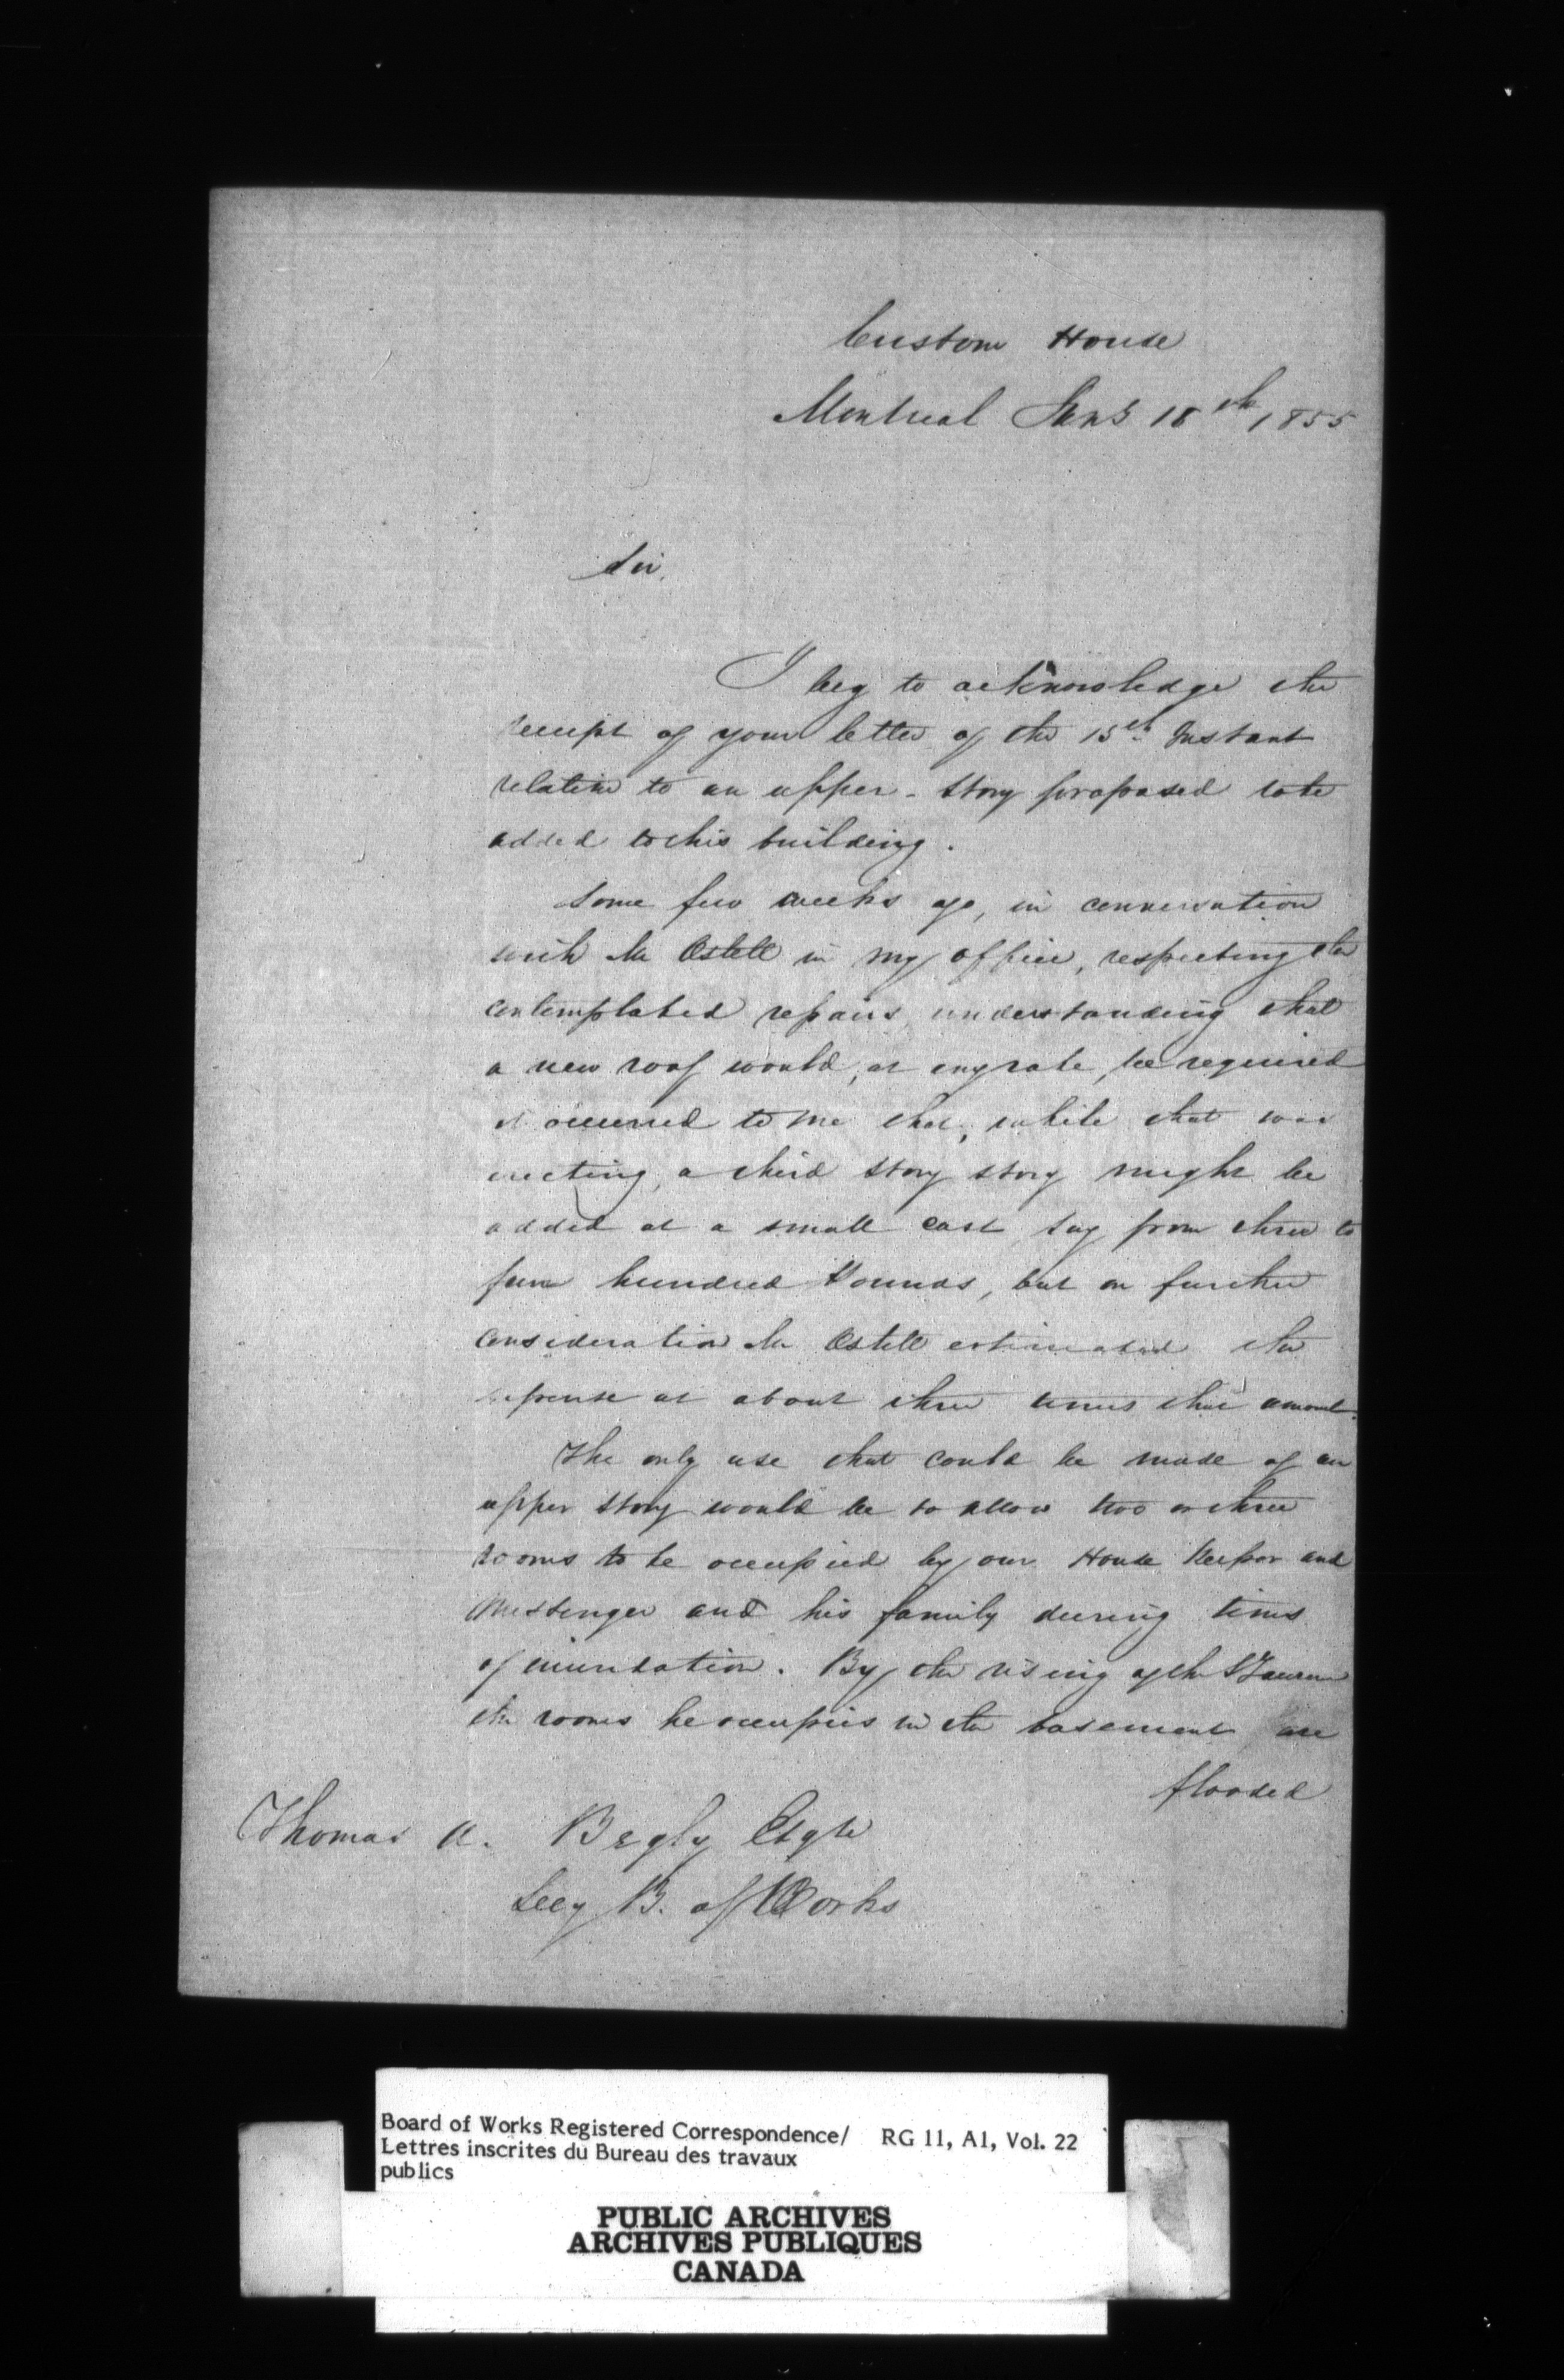 Custom House
Montreal 18th 1855
Sir,
I beg to acknowledge the
receipt of your letter of the 15th Instant
relative to an upper-story proposed to be
added to this building.
Some few weeks ago, in conversation
with Mr Ostell in my office, respecting the
contemplated repairs, understanding that
a new roof would, at any rate, be required
it occurred to me that, while that was
erecting, a third story story might be
added at a small cost say from three to
four hundred Pounds, but on further
consideration Mr Ostell estimated the
expense at about three times that amount.
The only use that could be made of an
upper story would be to allow two or three
rooms to be occupied by our House Keeper and
Messenger and his family during times
of inundation. By the rising of the St
the rooms he occupies in the basement are
flooded
Thomas A. Begly Esqre
Secy B. of Works
Board of Works Registered Correspondence/ RG 11, A1, Vol. 22
Lettres inscrites du Bureau des travaux
publics
PUBLIC ARCHIVES
ARCHIVES PUBLIQUES
CANADA